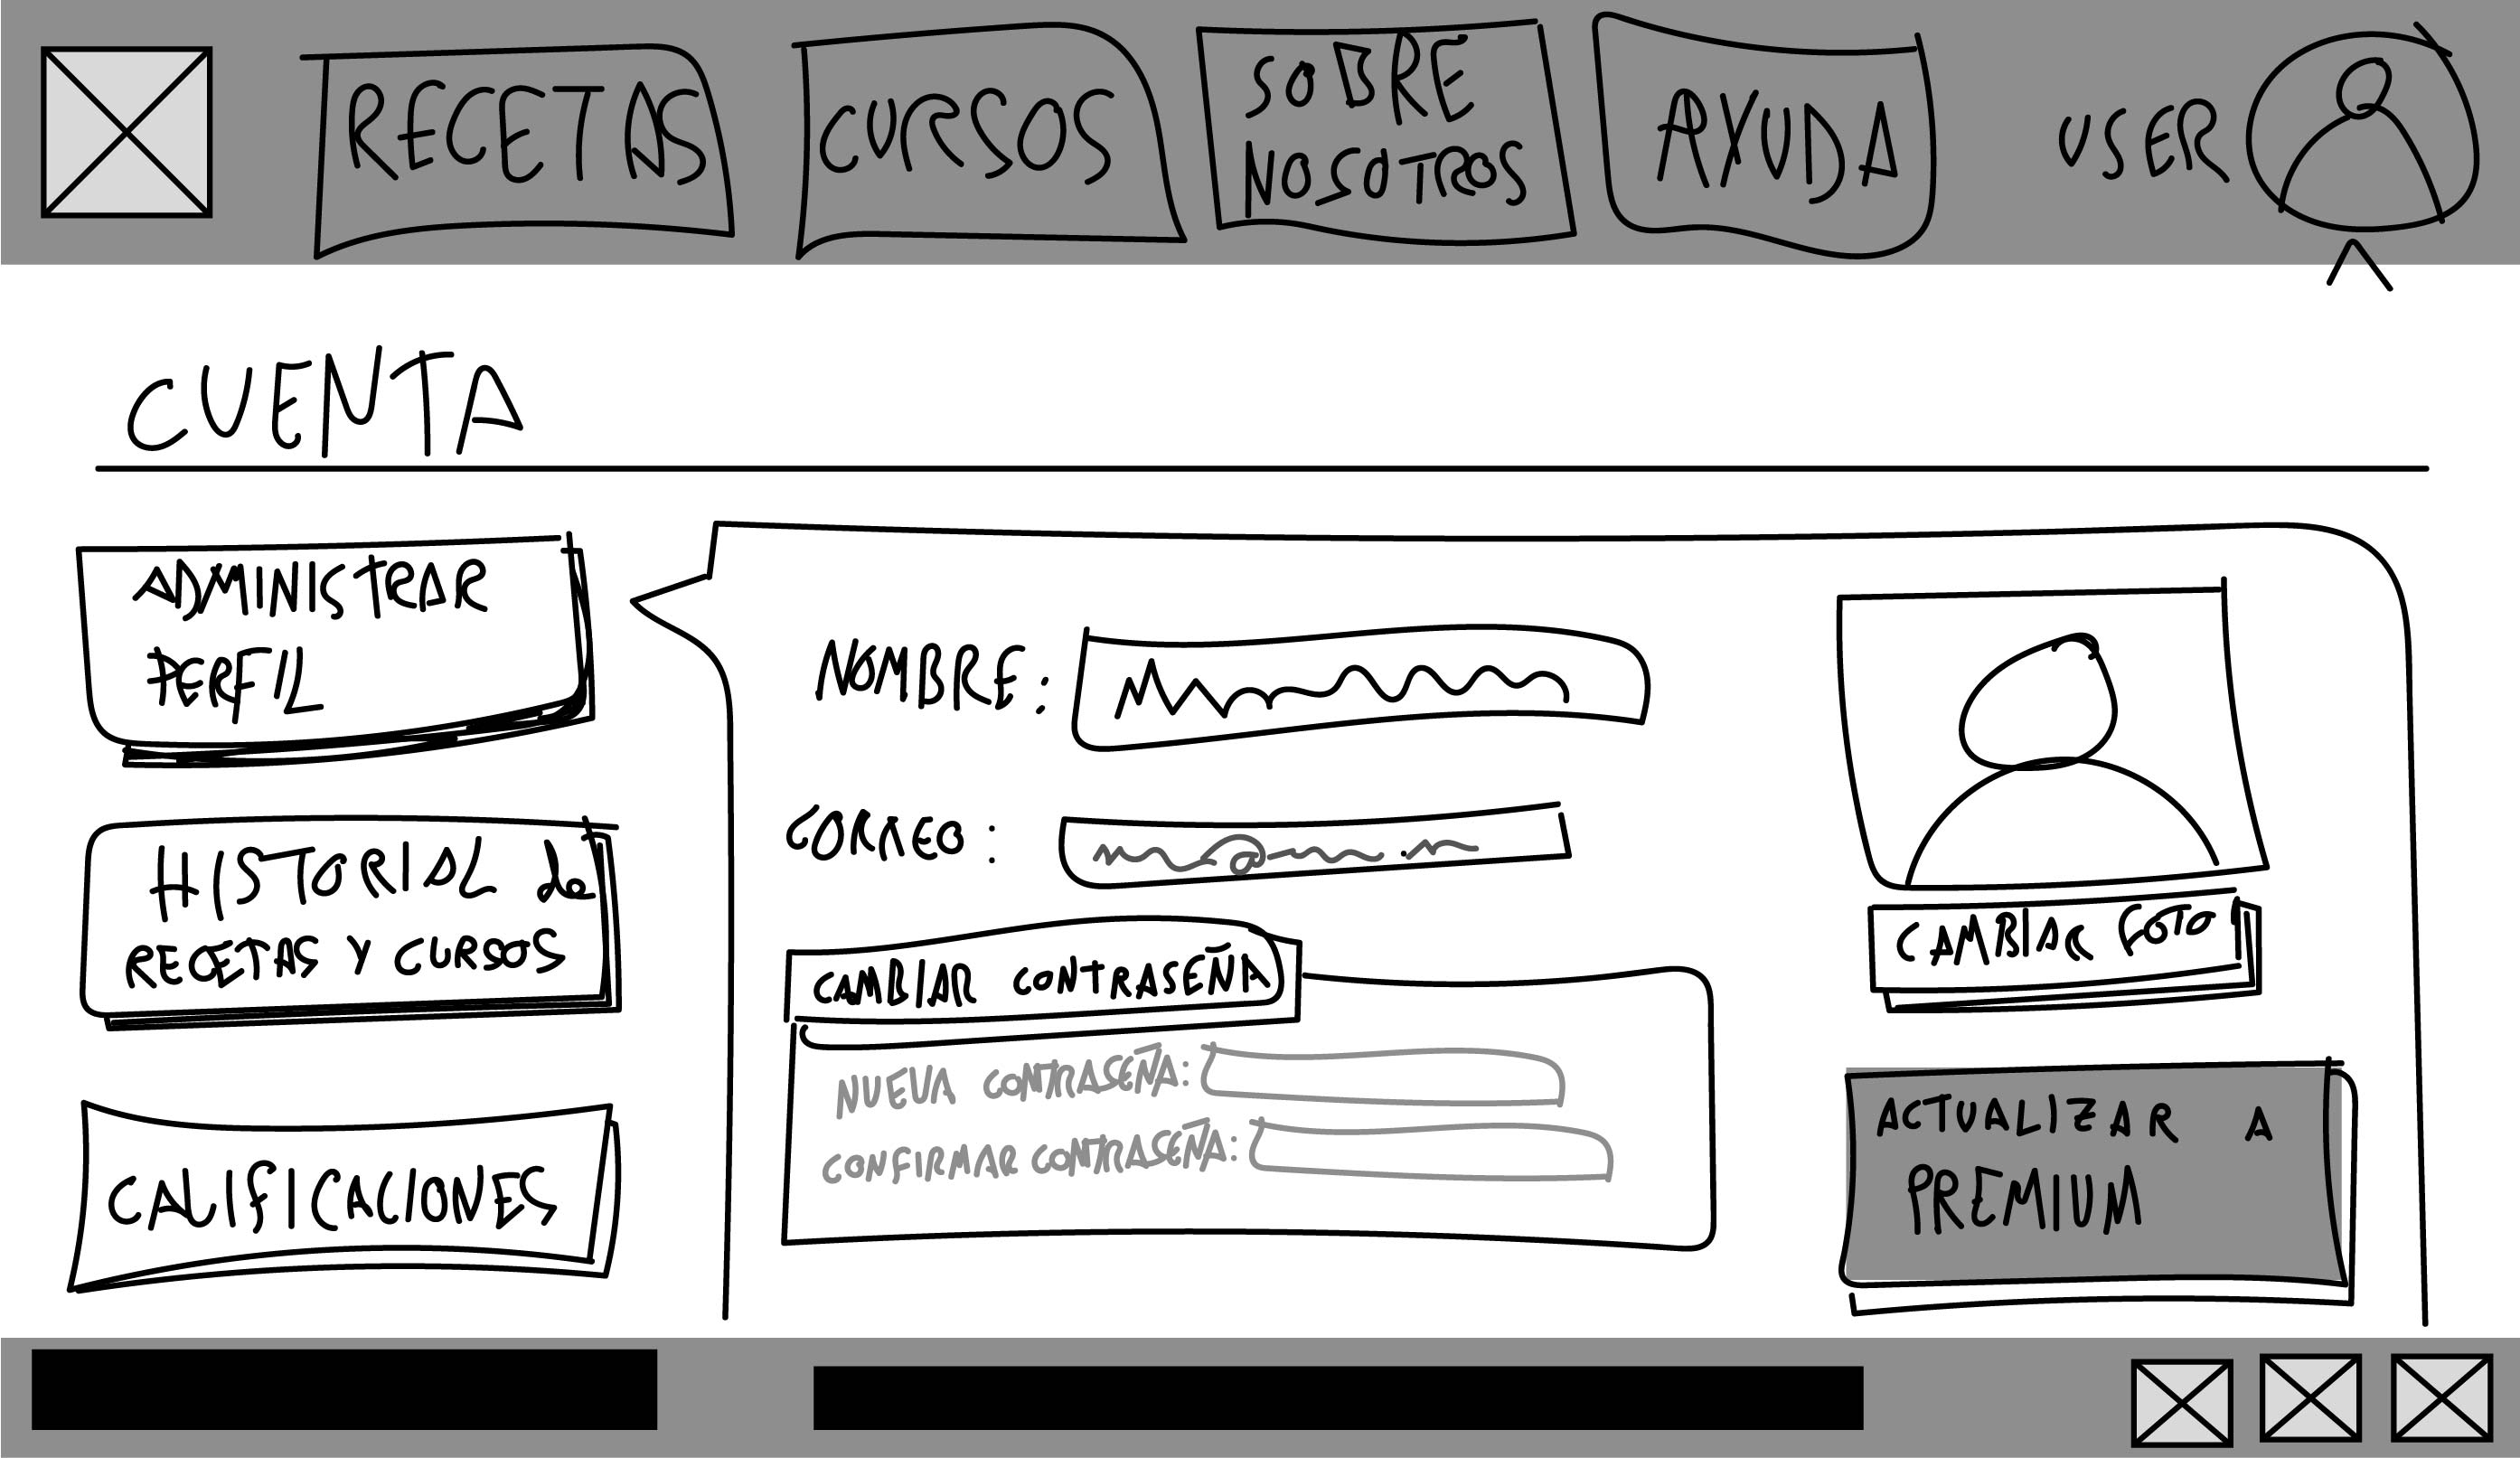 RECETAS
CURSOS
SOBRE
NOSOTROS
AYUDA
USER
CUENTA
ADMINISTRAR
PERFIL
HISTORIAL de
RECETAS Y CURSOS
CALIFICACIONES
NOMBRE:
CORREO:
@
CAMBIAR CONTRASEÑA
NUEVA CONTRASEÑA:
CONFIRMAR CONTRASEÑA:
CAMBIAR FOTO
ACTUALIZAR A
PREMIUM